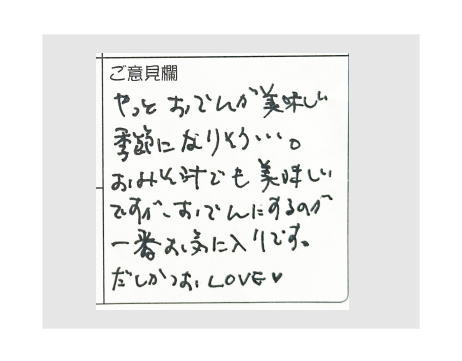 ご意見欄
やっと おでんが美味しい
季節になりそう・・・。
おみそ汁でも美味しい
ですが、おでんにするのが
一番お気に入りです。
だしかつお LOVE♥